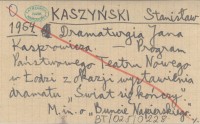 Q KASZYŃSKI Stanisław
1964 Dramaturgia Jana
Kasprowicza. — Program
Państwowego Teatru Nowego
w Łodzi z okazji wystawienia
dramatu „Świat się kończy"
M. in. o „Buncie Napierskiego"
BT/025/0228